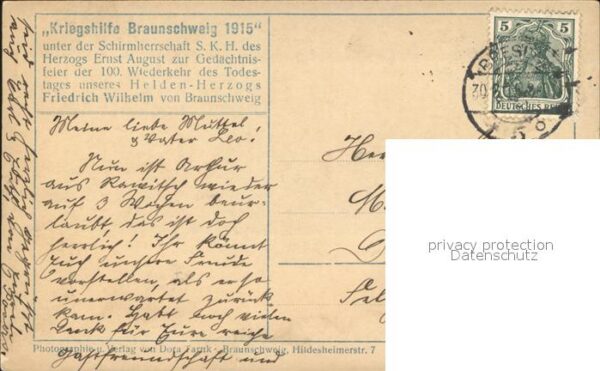 „Kriegshilfe Braunschweig 1915“
unter der Schirmherrschaft S. K. H. des
Herzogs Ernst August zur Gedächtnis-
feier der 100. Wiederkehr des Todes-
tages unseres Helden-Herzogs
Friedrich Wilhelm von Braunschweig
Meine liebe Muttel,
& Vater Leo!
Nun ist Arthur
aus Rawitsch wieder
auf 3 Wochen beur-
laubt, das ist doch
herrlich! Ihr könnt
Euch unsere Freude
vorstellen, als er so
unerwartet zurück
kam. Habt noch vielen
Dank für Eure reiche
Gastfreundschaft und
Photographie u. Verlag von Dora - Braunschweig, Hildesheimerstr. 7
5 5
DEUTSCHES REICH
BRESLAU
30
5
He
M
Fel
privacy protection
Datenschutz